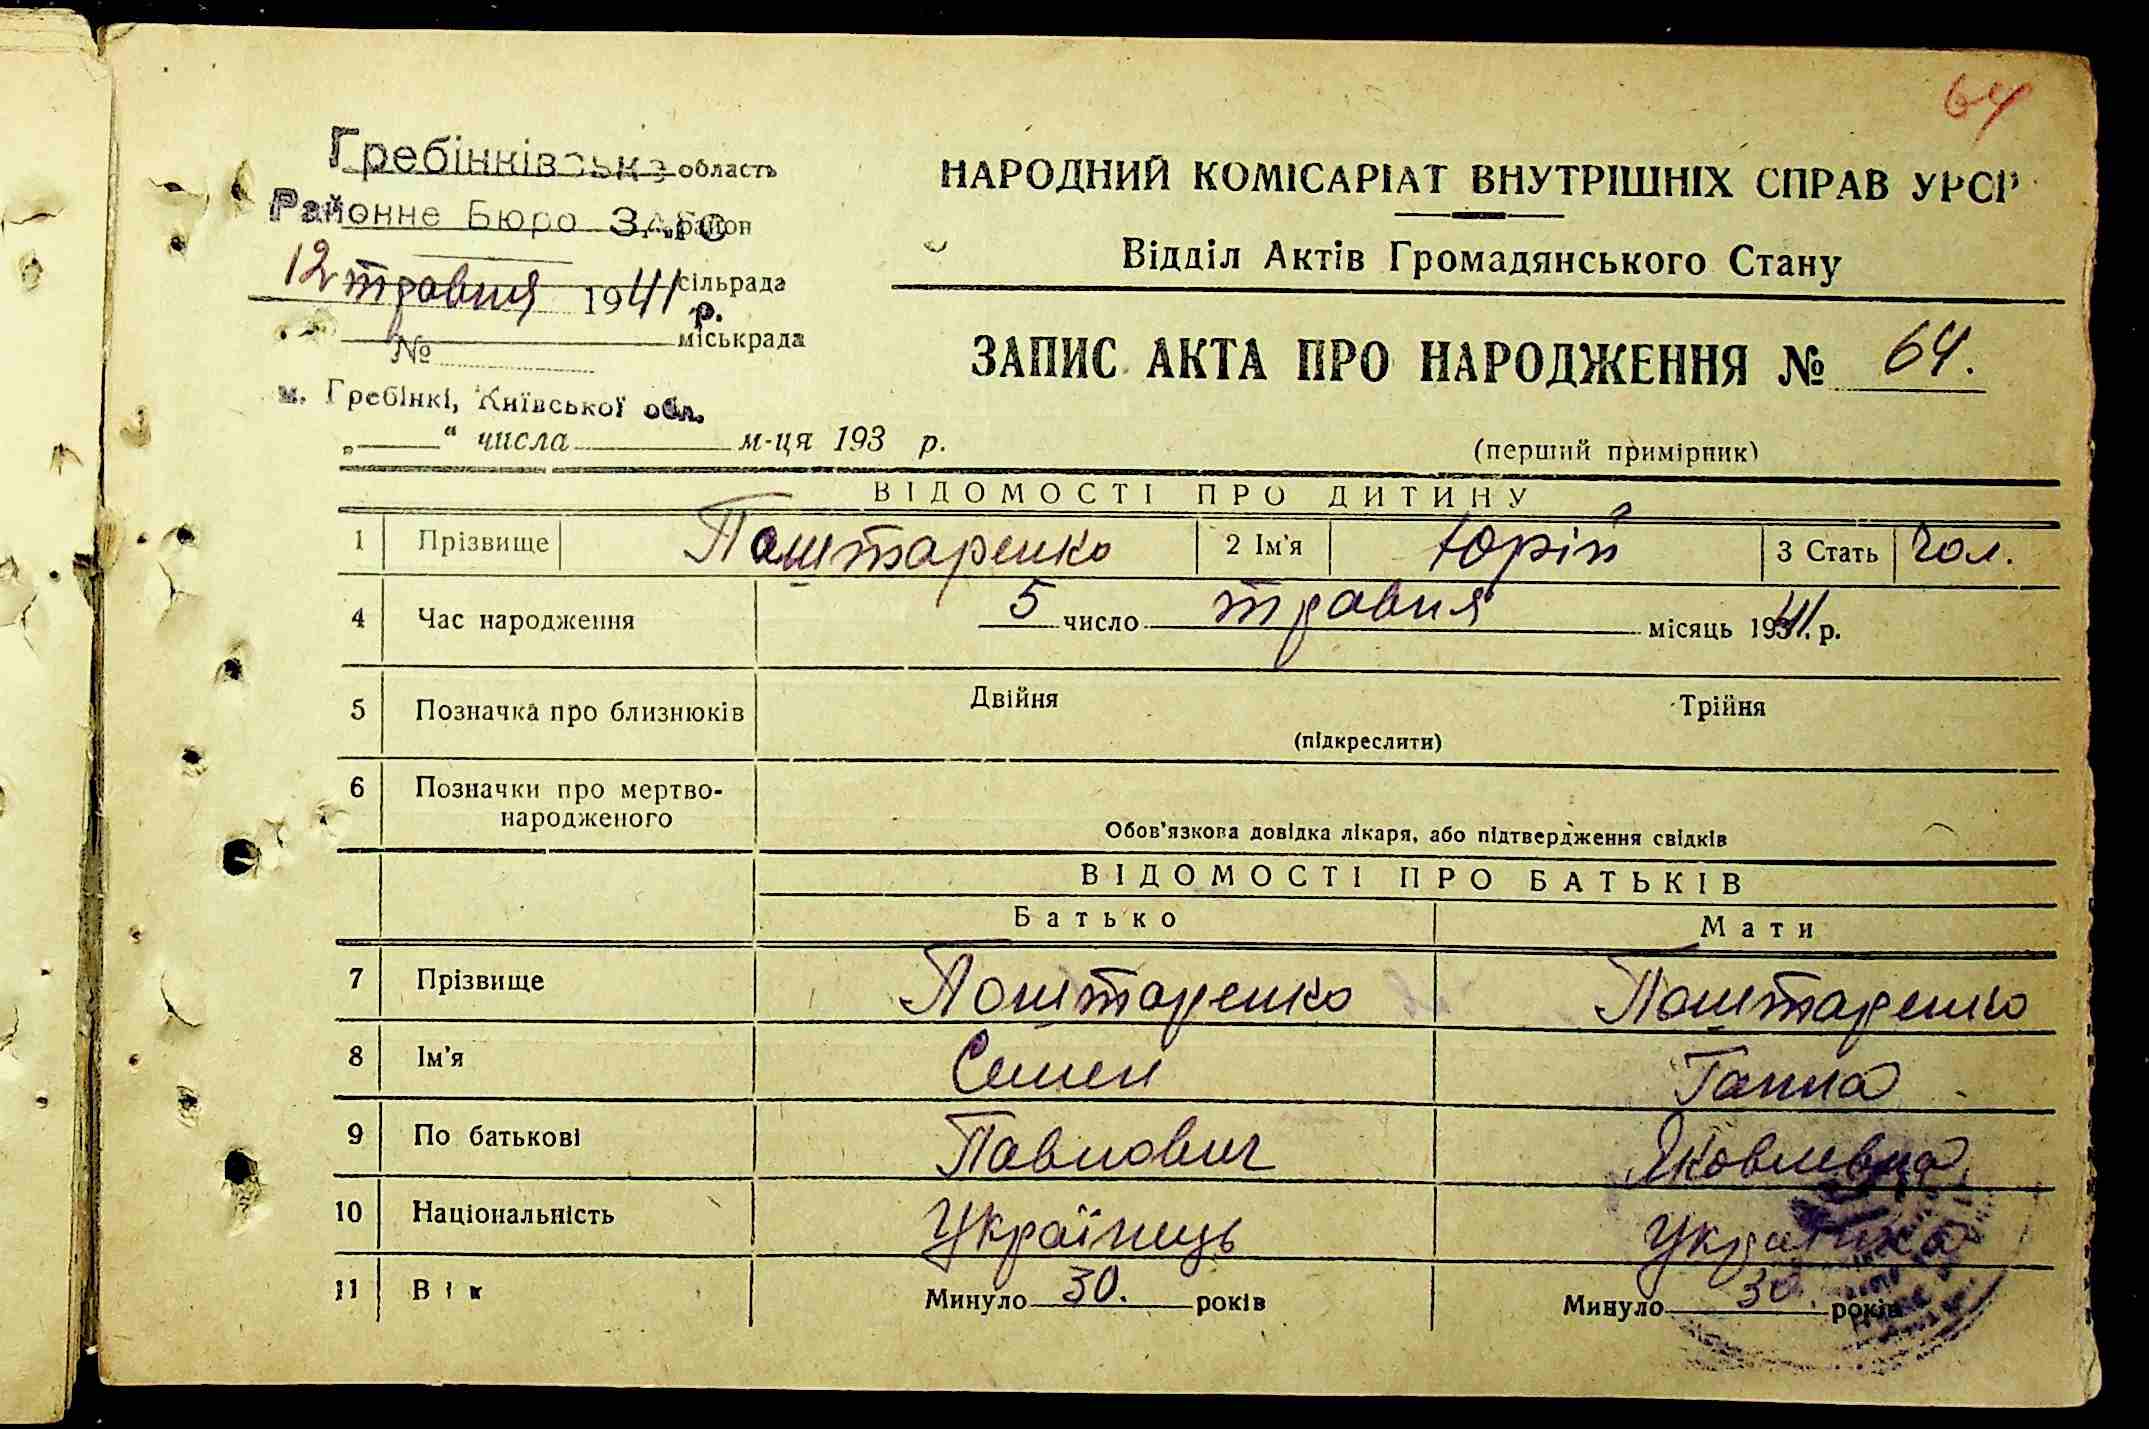 64
Гребінківська область
Районне Бюро ЗАГС район
12 травня 1941 р. сільрада
№ міськрада
м. Гребінкі, Київської обл.
„ “ числа м-ця 193 р.
НАРОДНИЙ КОМІСАРІАТ ВНУТРІШНІХ СПРАВ УРСР
Відділ Актів Громадянського Стану
ЗАПИС АКТА ПРО НАРОДЖЕННЯ № 64.
(перший примірник)
ВІДОМОСТІ ПРО ДИТИНУ
1 Прізвище Поштаренко 2 Ім'я Юрій 3 Стать Чол.
4 Час народження 5 число травня місяць 1941 р.
5 Позначка про близнюків Двійня Трійня
(підкреслити)
6 Позначки про мертво-
народженого
Обов'язкова довідка лікаря, або підтвердження свідків
ВІДОМОСТІ ПРО БАТЬКІВ
Батько Мати
7 Прізвище Поштаренко Поштаренко
8 Ім'я Семен Ганна
9 По батькові Павлович Яковлевна
10 Національність Українець Українка
11 Вік Минуло 30. років Минуло 30. років